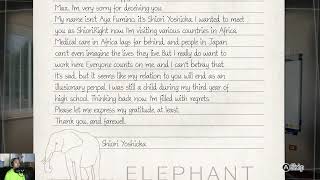 Max, I'm very sorry for deceiving you.
My name isn't Aya Fumino. It's Shiori Yoshicka. I wanted to meet
you as Shiori.Right now, I'm visiting various countries in Africa.
Medical care in Africa lags far behind, and people in Japan
can't even imagine the lives they live. But I really do want to
work here. Everyone counts on me, and I can't betray that.
It's sad, but it seems like my relation to you will end as an
illusionary penpal. I was still a child during my third year of
high school. Thinking back now, I'm filled with regrets.
Please let me express my gratitude, at least.
Thank you, and farewell.
Shiori Yoshicka
ELEPHANT
Skip